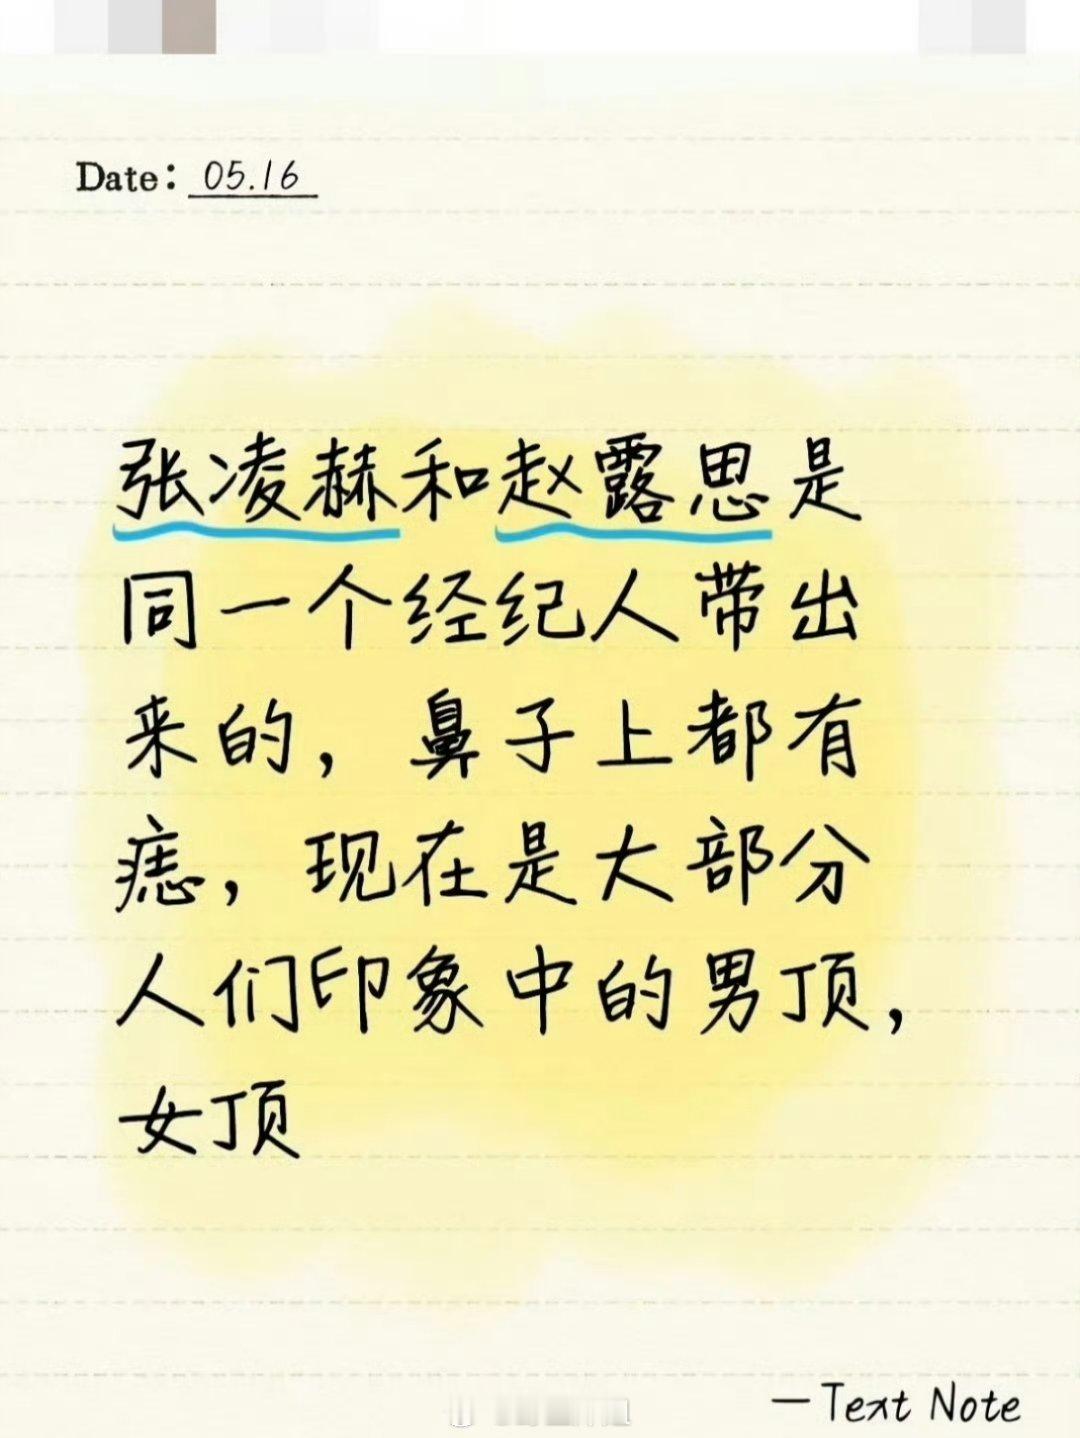 Date: 05.16
张凌赫和赵露思是
同一个经纪人带出
来的，鼻子上都有
痣，现在是大部分
人们印象中的男顶，
女顶
—Text Note